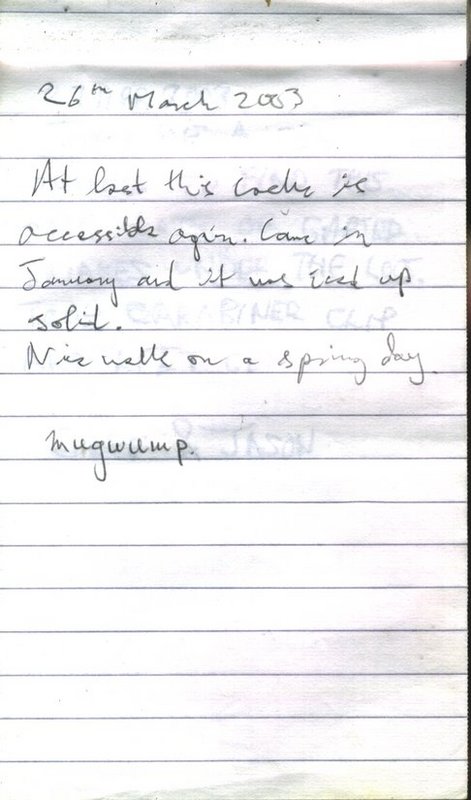 26th March 2003
At last this cache is
accessible again. Came in
January and it was iced up
solid.
Nice walk on a spring day.
mugwump.
CARABINER CLIP